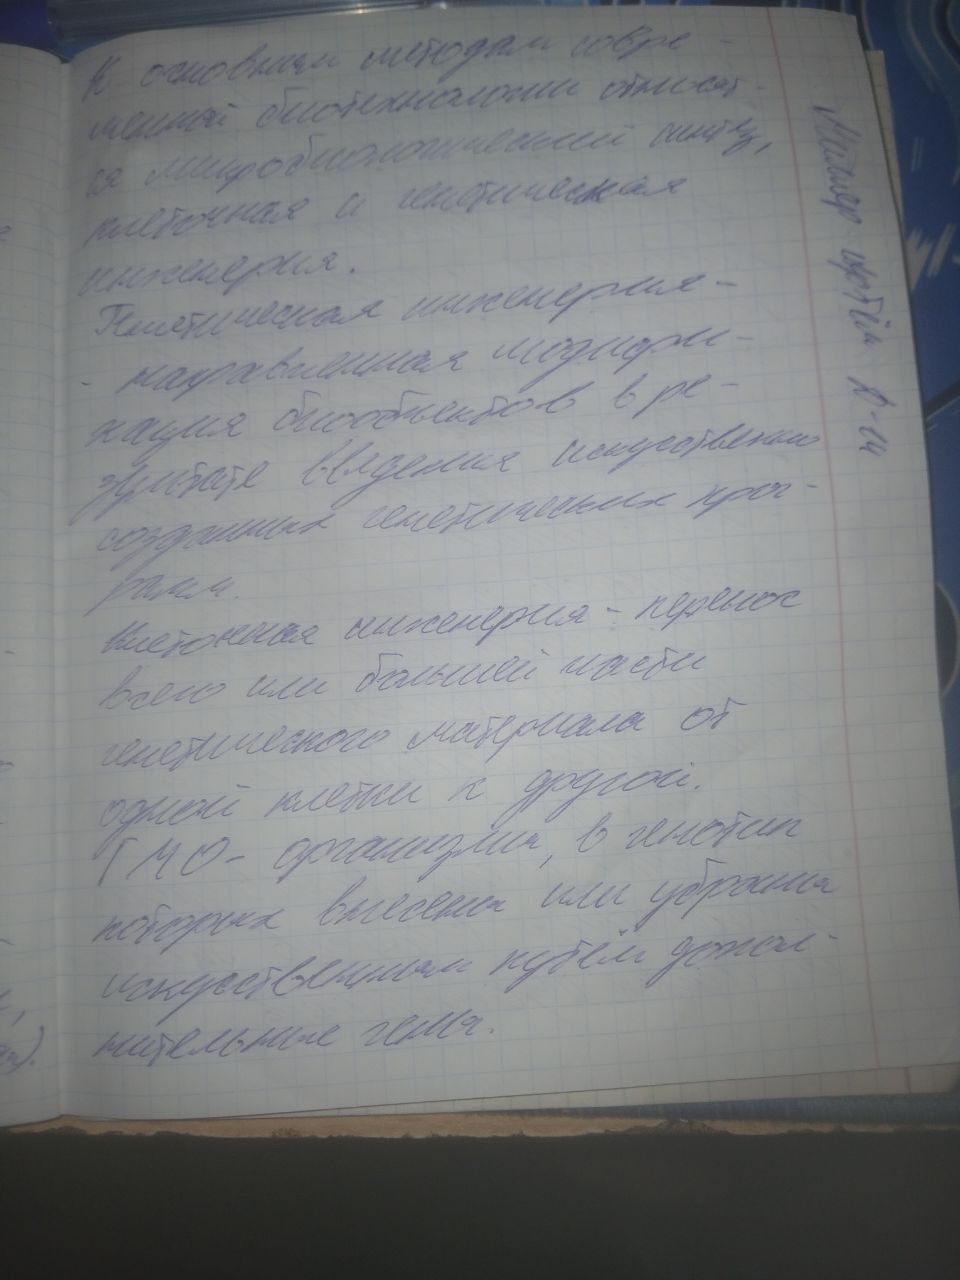 К основным методам совре-
менной биотехнологии относят-
ся микробиологический синтез,
клеточная и генетическая
инженерия.
Генетическая инженерия-
- направленная модифи-
кация биообъектов в ре-
зультате введения искусственно
созданных генетических прог-
рамм.
Клеточная инженерия - перенос
всего или большей части
генетического материала от
одной клетки к другой.
ГМО - организмы, в генотип
которых внесены или убраны
искусственным путём допол-
нительные гены.
Артём